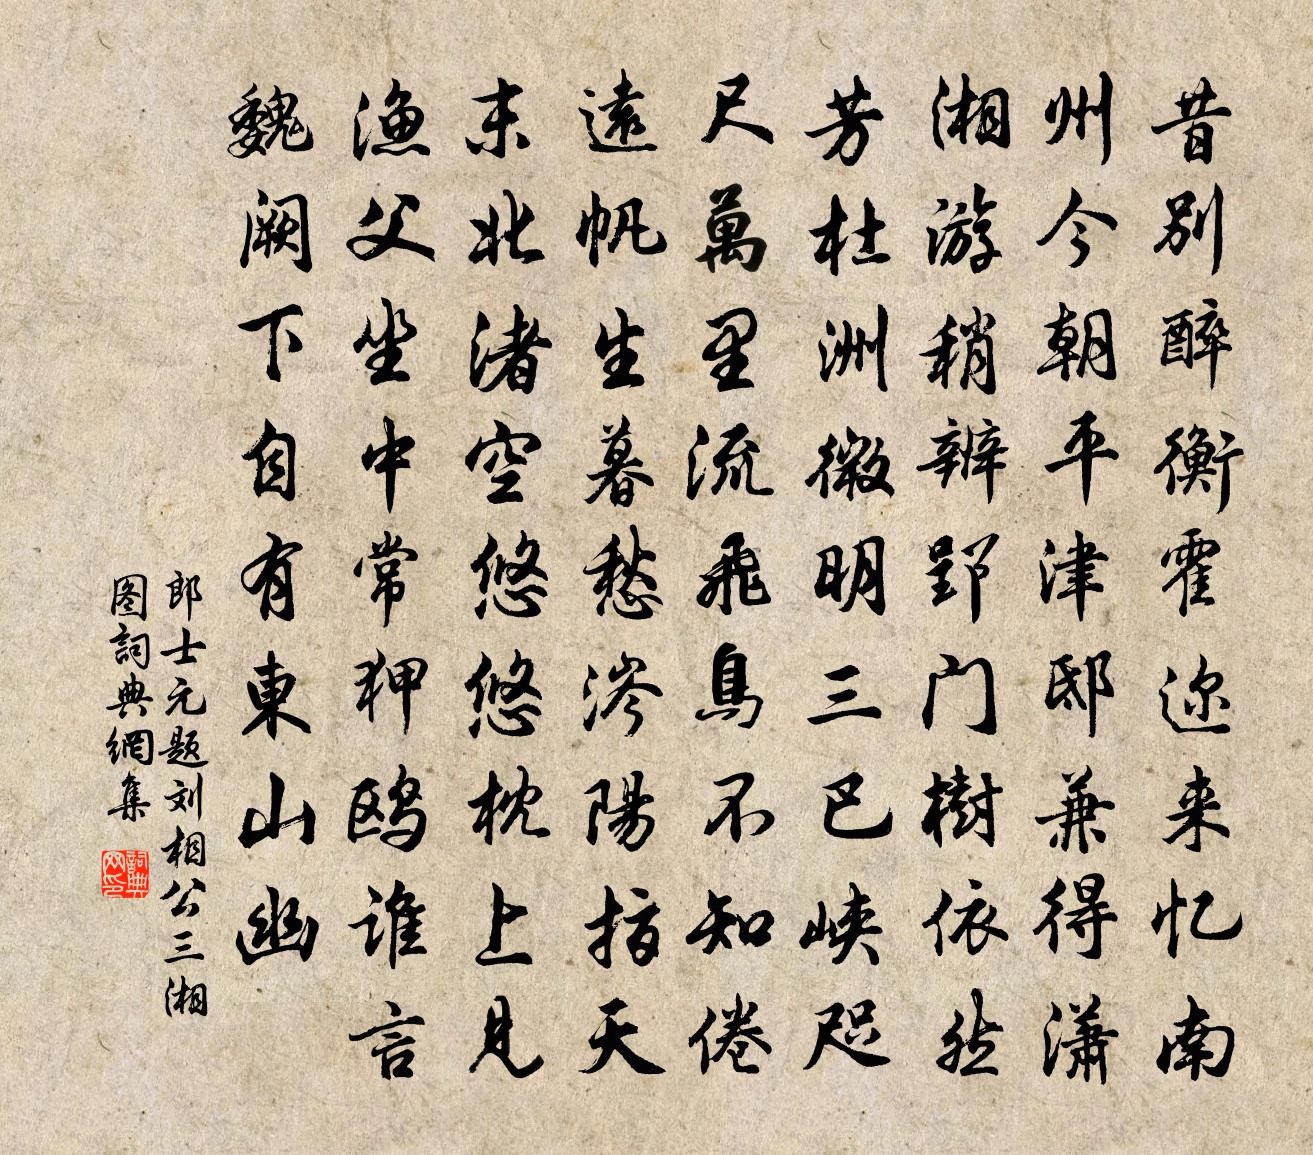 昔别醉衡霍迩来忆南
州今朝平津邸兼得潇
湘游稍辨郢门樹依然
芳杜洲微明三巴峡咫
尺萬里流飛鳥不知倦
遠帆生暮愁涔陽指天
末北渚空悠悠枕上見
漁父坐中常狎鸥谁言
魏阙下自有東山幽
郎士元题刘相公三湘
图詞典網集
詞典网印